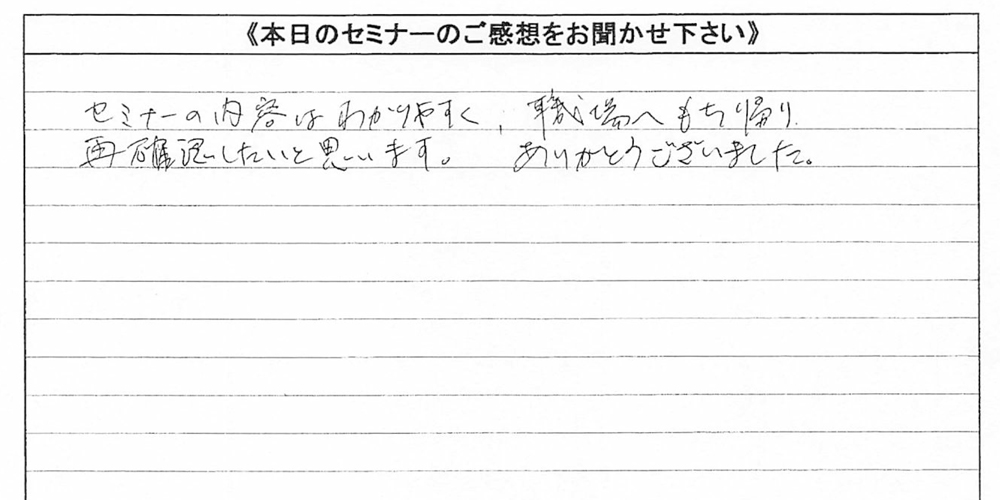 《本日のセミナーのご感想をお聞かせ下さい》
セミナーの内容はわかりやすく、職場へもち帰り
再確認したいと思います。 ありがとうございました。